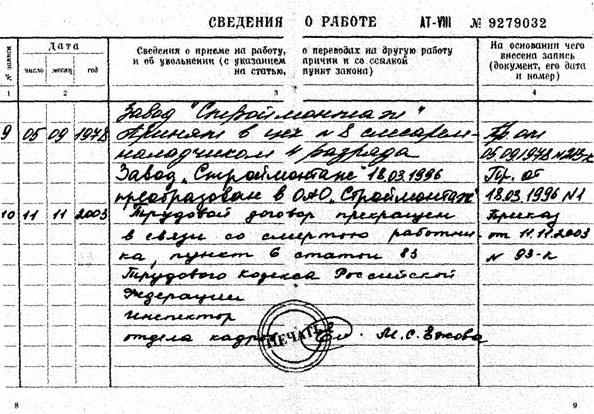 СВЕДЕНИЯ О РАБОТЕ АТ-VIII № 9279032
№ записи
Дата
число месяц год
Сведения о приеме на работу, о переводах на другую работу
и об увольнении (с указанием причин и со ссылкой
на статью, пункт закона)
На основании чего
внесена запись
(документ, его дата
и номер)
1 2 3 4
Завод "Строймонтаж"
9 05 09 1978 Принят в цех №8 слесарем- Пр. от
наладчиком 4 разряда 05.09.1978 №213-к
Завод „Строймонтаж" 18.03.1996 Пр. от
преобразован в ОАО „Строймонтаж" 18.03.1996 №1
10 11 11 2003 Трудовой договор прекращен Приказ
в связи со смертью работни- от 11.11.2003
ка, пункт 6 статьи 83 № 93-к
Трудового кодекса Российской
Федерации
Инспектор
отдела кадров М.С. Ежова
ПЕЧАТЬ
8 9